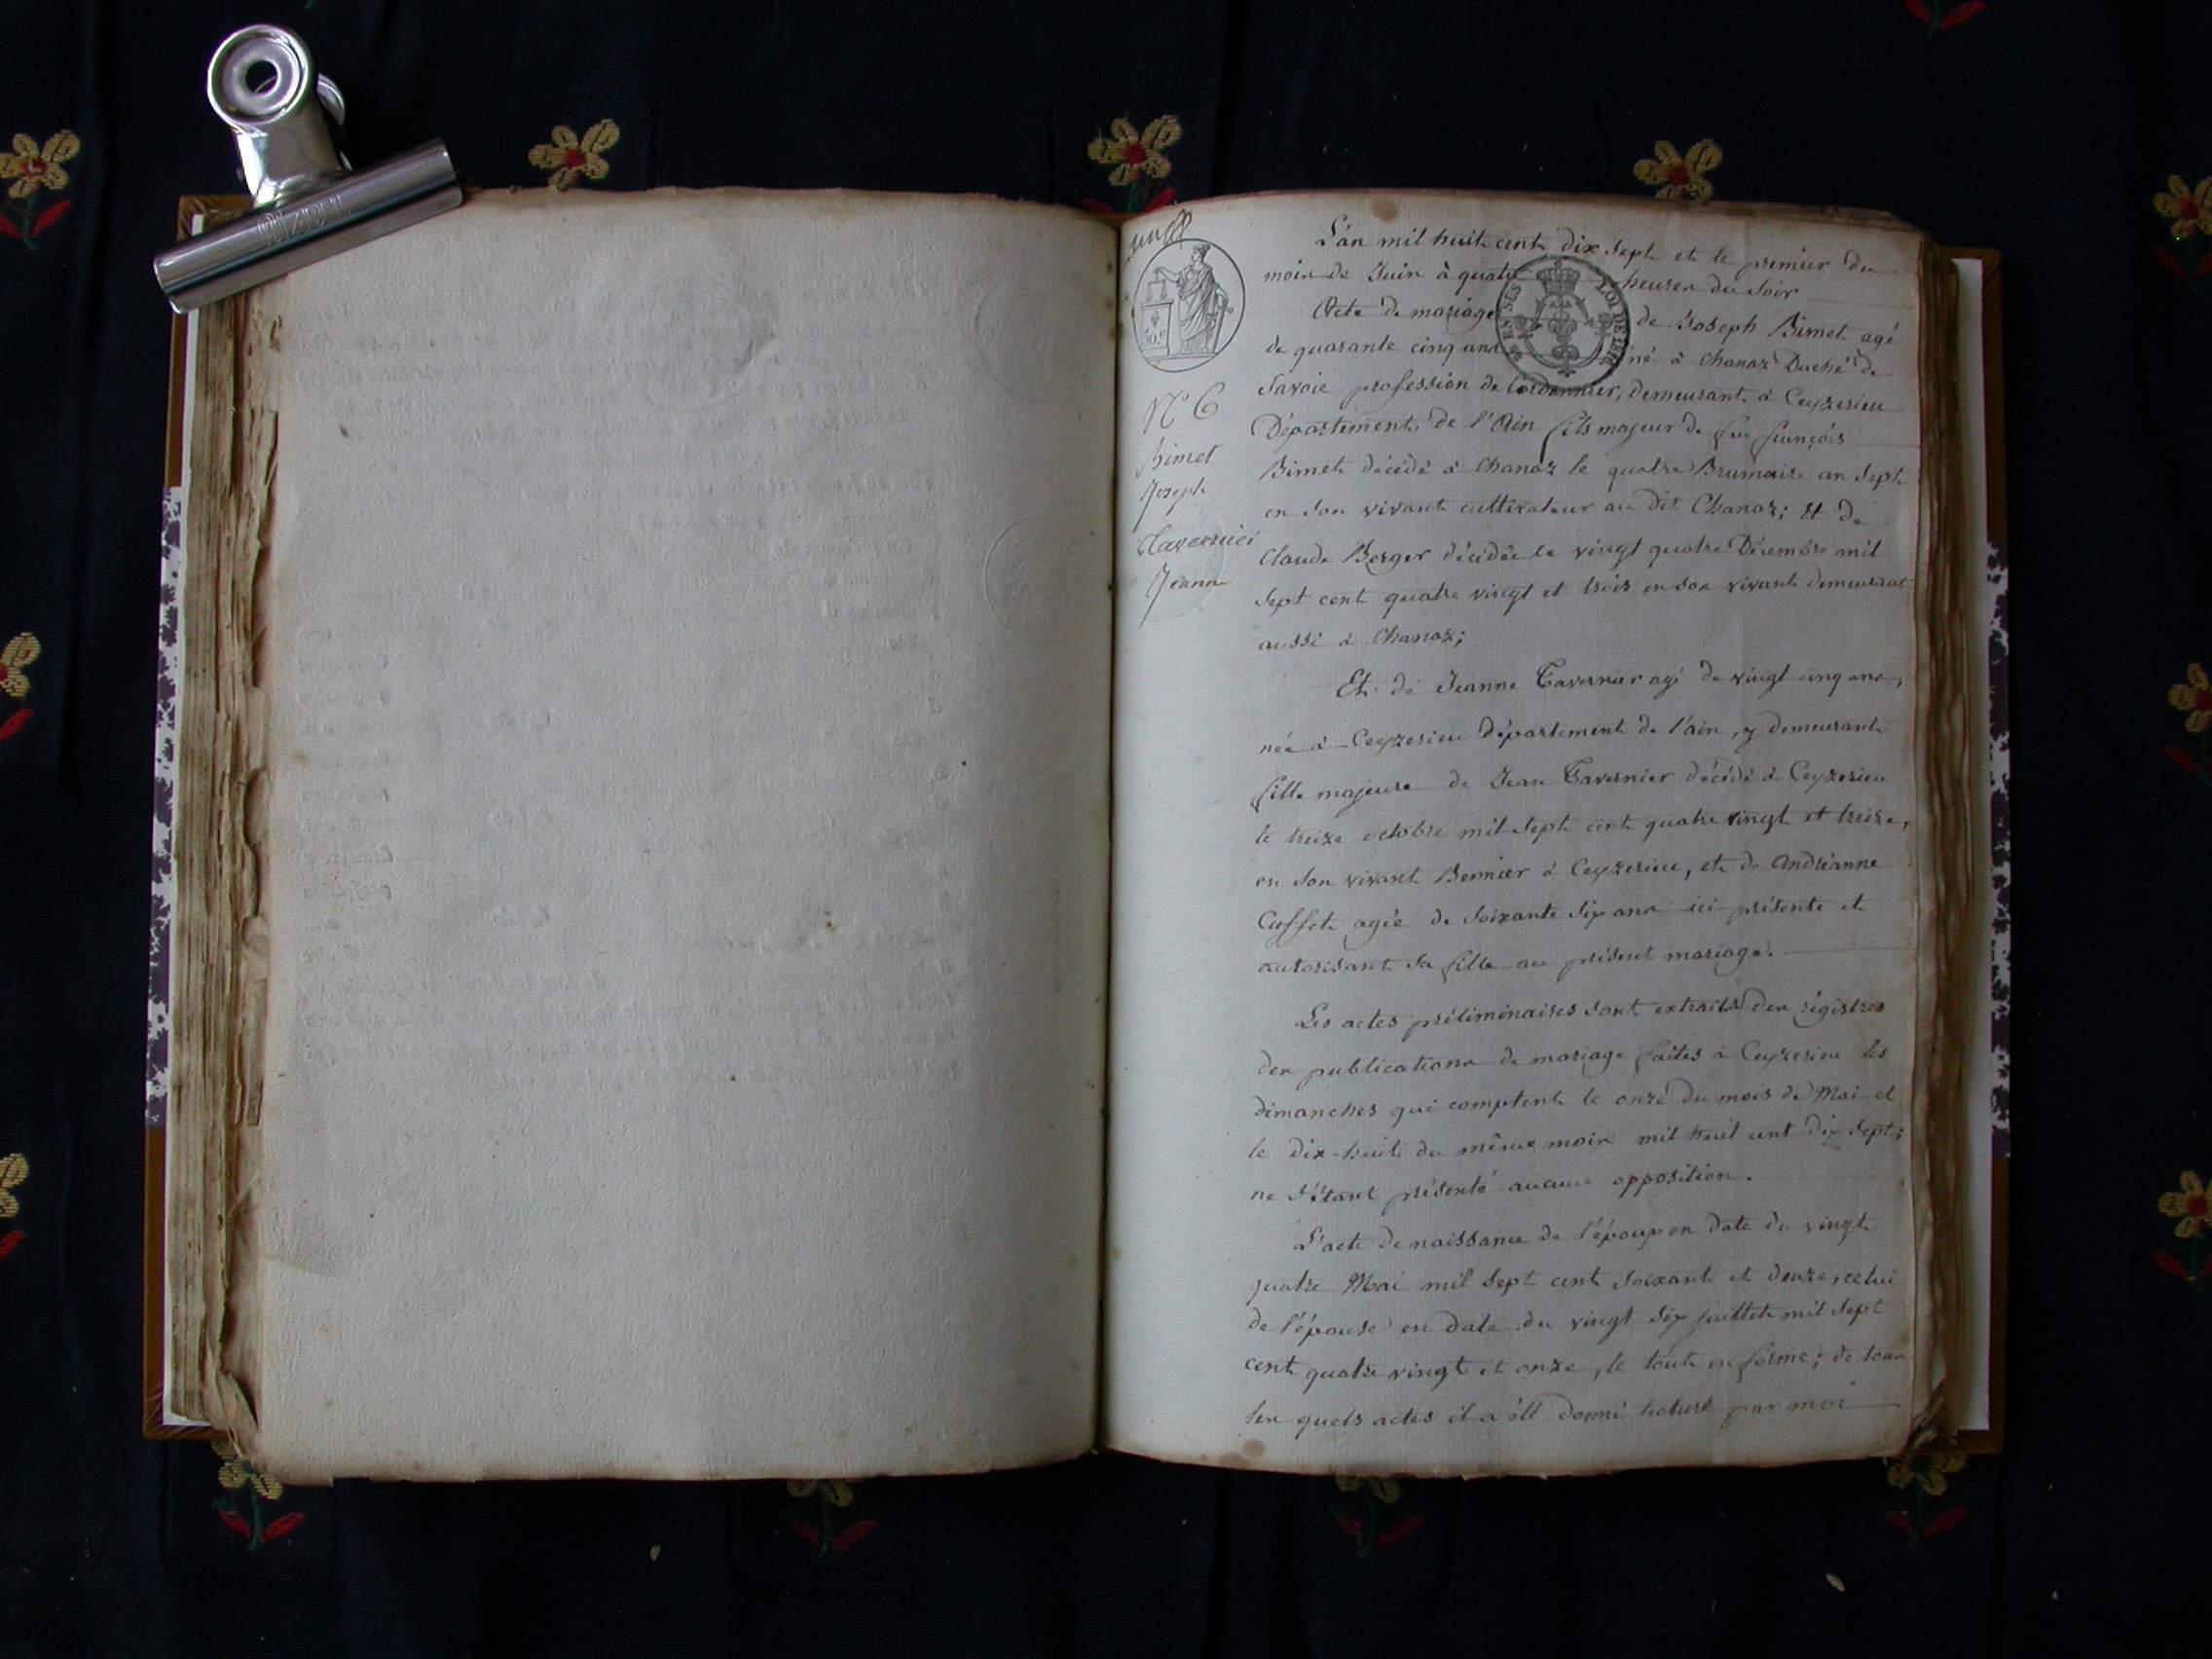 N° 6
Bimet
Joseph
Tavernier
Jeanne
L'an mil huit cent dix sept et le premier du
mois de Juin à quatre heures du Soir
Acte de mariage de Joseph Bimet agé
de quarante cinq ans né à Chanaz Duché de
Savoie profession de Cordonnier, demeurant à Ceyzerieu
Département de l'Ain fils majeur de feu françois
Bimet décédé à Chanaz le quatre Brumaire an Sept
en Son vivant cultivateur au dit Chanaz; Et de
Claude Berger décédée le vingt quatre Décembre mil
Sept cent quatre vingt et trois en Son vivant demeurant
aussi à Chanaz;
Et de Jeanne Tavernier agé de vingt cinq ans,
née à Ceyzerieu Département de l'ain, y demeurant
fille majeure de Jean Tavernier décédé à Ceyzerieu
le treize octobre mil Sept cent quatre vingt et treize,
en Son vivant à Ceyzerieu, et de Andréanne
Cusset agée de Soixante Six ans ici présente et
autorisant Sa fille au présent mariage.
Les actes préliminaires Sont extraits des régistres
des publications de mariage faites à Ceyzerieu les
dimanches qui comptent le onze du mois de Mai et
le dix-huit du même mois mil huit cent dix Sept;
ne S'étant présenté aucune opposition.
L'acte de naissance de l'époux en date du vingt
quatre Mai mil Sept cent Soixante et douze, celui
de l'épouse en date du vingt Six juillet mil Sept
cent quatre vingt et onze, le tout en forme; de tous
les quels actes il a été donné lecture par moi